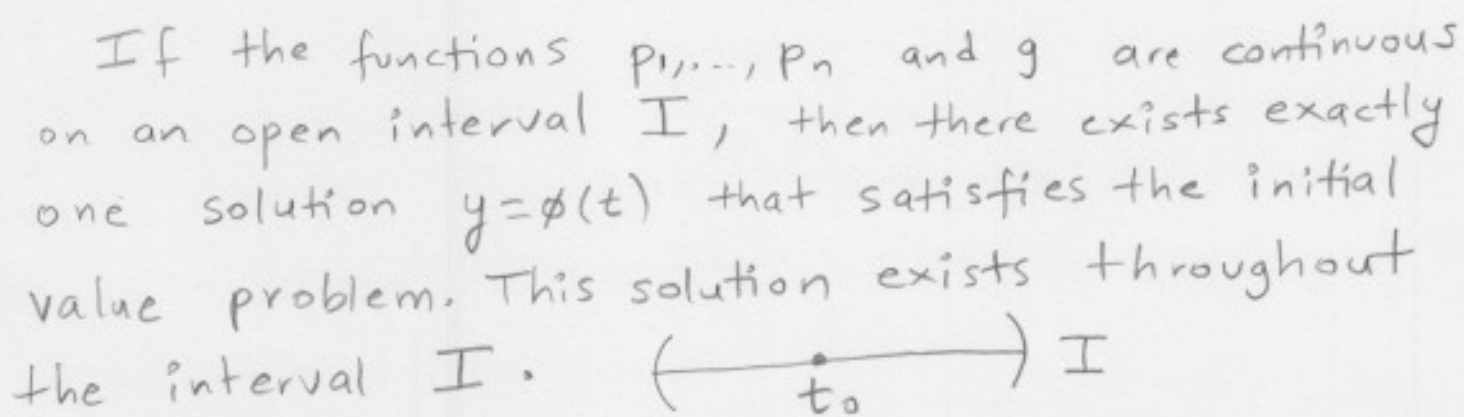 If the functions p₁,..., pₙ and g are continuous
on an open interval I, then there exists exactly
one solution y=φ(t) that satisfies the initial
value problem. This solution exists throughout
the interval I. ( t₀ ) I